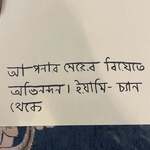 আপনার মেয়ের বিয়েতে
অভিনন্দন। ইয়ামি-চ্যান
থেকে